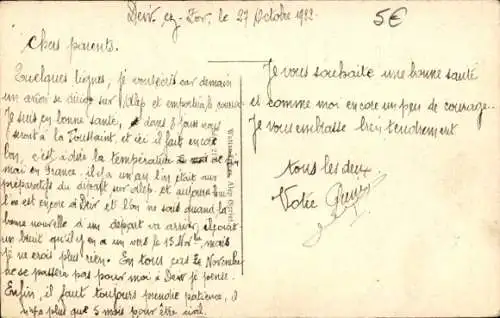 Deir ez-Zor, le 27 Octobre 1922
5€
Chers parents.
Quelques lignes, je vous écris car demain
un avion se dirige sur Alep et emportera
Je suis en bonne santé, dans 8 jours nous
seront à la Toussaint, et ici il fait encore
bon, c'est à dire la température
mai en France. il y a un an l'on était aux
préparatifs du départ sur Alep. et aujourd'hui
l'on est encore à Deir et l'on ne sais quand la
bonne nouvelle d'un départ va arriver, il court
un bruit qu'il y en a un vers le 15 Nov. mais
je ne crois plus rien. En tous cas le Novembre
ne se passera pas pour moi à Deir je pense.
Enfin, il faut toujours prendre patience, il
n'y a plus que 5 mois pour être civil.
Je vous souhaite une bonne santé
et comme moi encore un peu de courage..
Je vous embrasse bien tendrement
tous les deux
Votre